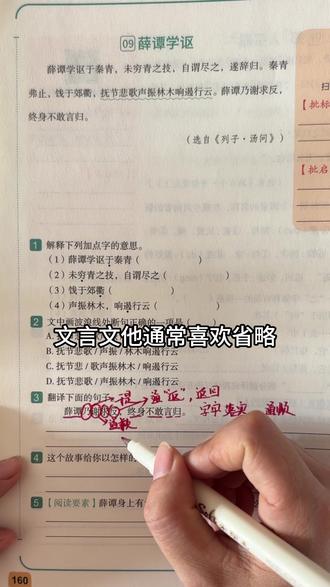 09 薛谭学讴
薛谭学讴于秦青，未穷青之技，自谓尽之，遂辞归。秦青
弗止，饯于郊衢，抚节悲歌声振林木响遏行云。薛谭乃谢求反，
终身不敢言归。
（选自《列子·汤问》）
【批标
【批启
1 解释下列加点字的意思。
（1）薛谭学讴于秦青（ ）
（2）未穷青之技，自谓尽之（ ）
（3）饯于郊衢（ ）
（4）声振林木，响遏行云（ ）
2 文中画波浪线处断句正确的一项是（ ）
文言文他通常喜欢省略
B. 抚节悲歌/声振/林木响遏行云
C. 抚节悲/歌声振林木/响遏行云
D. 抚节悲歌/声振林木/响遏行云
3 翻译下面的句子。
薛谭乃谢求反，终身不敢言归。
字字落实
道歉
道歉
4 这个故事给你以怎样的
5 【阅读要素】薛谭身上有
160